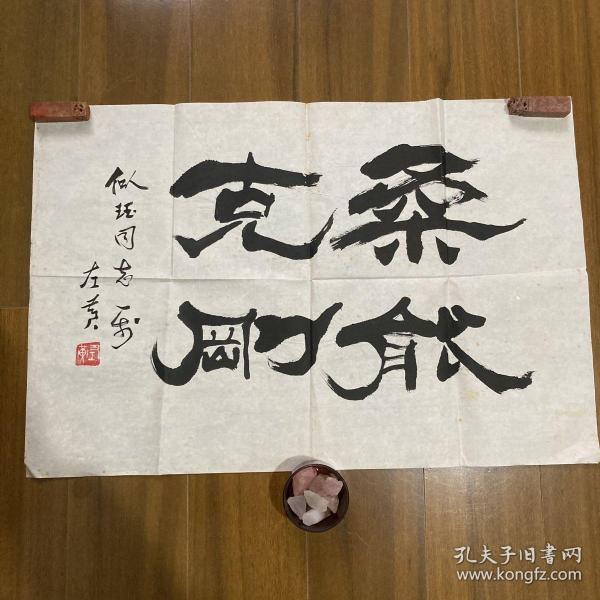 柔能
克剛
似 同志
左
孔夫子旧书网
www.kongfz.com